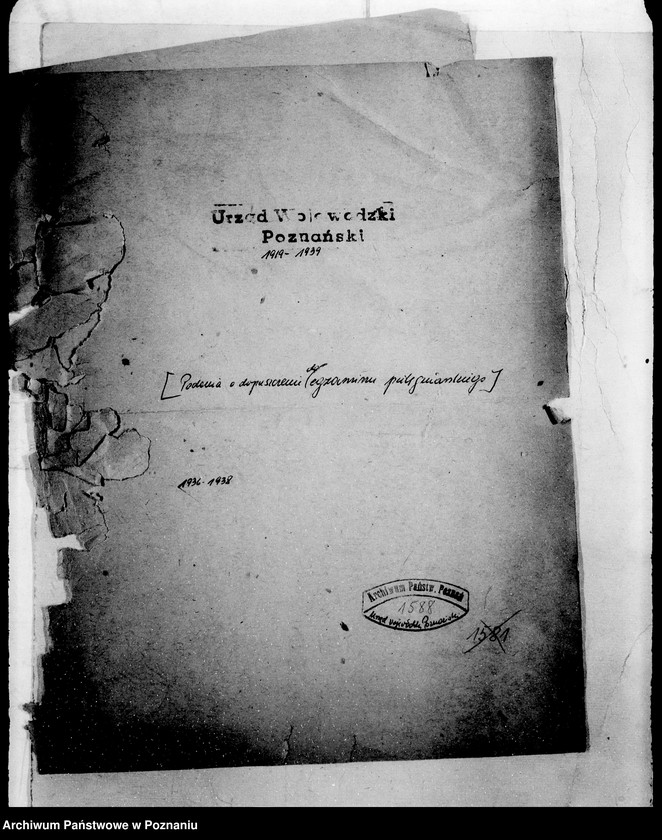 Urząd Wojewódzki
Poznański
1919-1939
[Podania o dopuszczenie do egzaminu pielęgniarskiego]
1936-1938
Archiwum Państw. Poznań
1588
Urząd Wojewódzki Poznański
1581
Archiwum Państwowe w Poznaniu